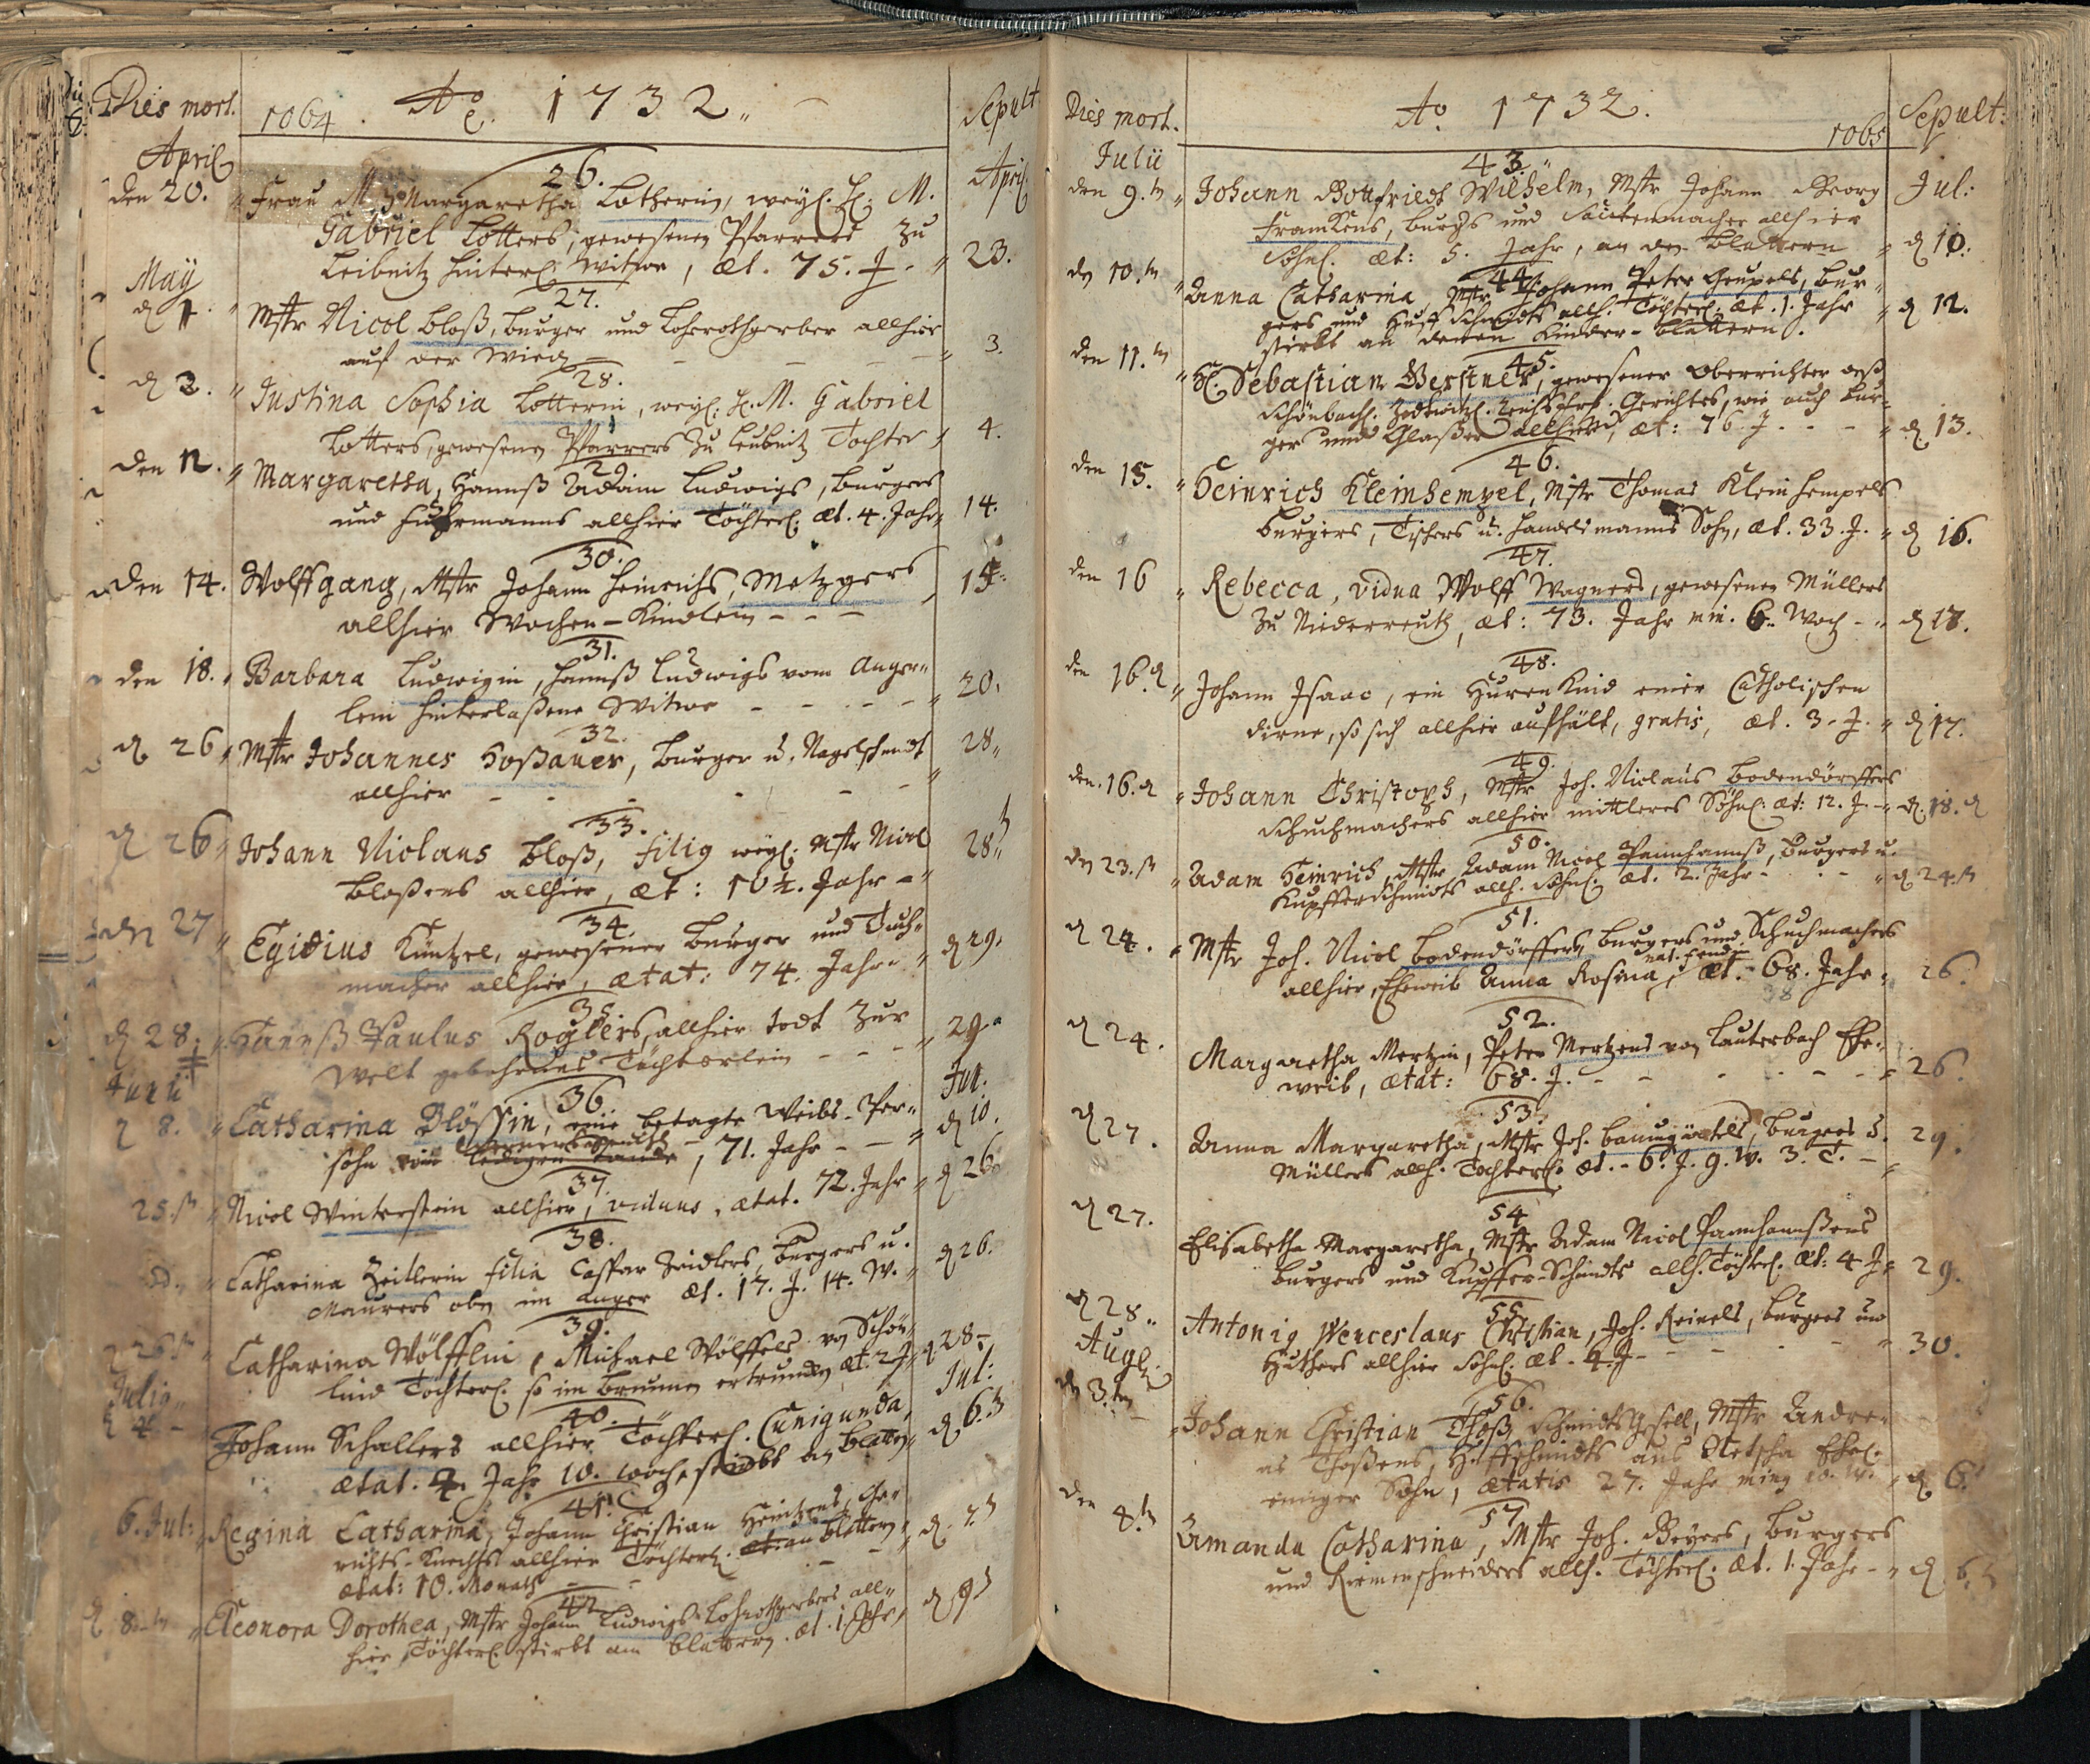 Dies mort.
1064
Ao. 1732.
Sepult
April
April
26.
den 20. Frau M. Margaretha Lotherin, weyl. H. M.
Gabriel Lotters, gewesenen Pfarrers zu
Leibnitz hinterl. Witwe, æt. 75. J. 23.
May
27.
d. 1. Mstr Nicol Bloß, Burger und Lohrothgerber allhier
auf der Wiedn 3.
28.
d. 2. Justina Sophia Lotterin, weyl. H. M. Gabriel
Lotters, gewesenen Pfarrers zu Leubnitz Tochter 4.
29.
den 12. Margaretha, Hannß Adam Ludwigs, Burgers
und Fuhrmanns allhier Töchterl. æt. 4. Jahr 14.
30.
den 14. Wolffgang, Mstr Johann Heinrichs, Metzgers
allhier Wochen-Kindlein 15.
31.
den 18. Barbara Ludwigin, Hannß Ludwigs vom Anger-
lein hinterlaßene Witwe 20.
32.
d. 26 Mstr Johannes Hoßauer, Burger u. Nagelschmidt 28
allhier
33.
d. 26 Johann Nicolaus Bloß, filig weyl. Mstr Nicol 28
Bloßens allhier, æt: 10 1/4. Jahr
34.
den 27 Egidius Küntzel, gewesener Burger und Tuch-
macher allhier, ætat: 74. Jahr d. 29.
35.
d. 28. Hannß Paulus Roglers, allhier todt zur
Welt gebohrnes Töchterlein 29
Junii
Jun.
36
d. 8. Catharina Blößin, eine betagte Weibs-Per-
sohn vom ledigen Stande, 71. Jahr d. 10.
37.
25. Nicol Winterstein allhier, viduus, ætat. 72. Jahr d. 26
38.
Catharina Zeitlerin filia Caspar Zeidlers, Burgers u.
Maurers obn im Anger æt. 17. J. 14. W. d. 26.
39.
d. 26 Catharina Wölfflin, Michael Wölffels von Schön-
lind Töchterl. so im Brunnen ertrunken æt. 2 J. d. 28
Julig
Jul:
40.
d. 4 Johann Schallers allhier Töchterl. Cunigunda,
ætat. 4. Jahr 10. Woch, stirbt an Blattern d. 6.
41.
6. Jul: Regina Catharina, Johann Christian Heintzens, Ge-
richts-Knechts allhier Töchterl. an Blattern d. 7.
ætat: 10. Monath
42.
d. 8. Eleonora Dorothea, Mstr Johann Ludwigs Lohrothgerbers all-
hier Töchterl. stirbt am Blattern. æt. 1. Jahr d. 9
Dies mort.
Ao. 1732.
1065
Sepult:
Julii
Jul:
43.
den 9. Johann Gottfriedt Wilhelm, Mstr Johann Georg
Franckens, Burgs und Saittenmacher allhier
Söhnl. æt: 5. Jahr, an den Blattern d. 10.
44.
dn 10. Anna Catharina, Mstr Johann Peter Geupels, Bur-
gers und Huffschmidts allh. Töchterl. æt. 1. Jahr d. 12.
stirbt an denen Kinder-Blattern.
45.
den 11. H. Sebastian Gerstner, gewesener Oberrichter deß
Schönbach. Zedtwitz. Gerichts, wie auch Bur-
ger und Glaßer allhier, æt: 76 J. d. 13.
46.
den 15. Heinrich Kleinhempel, Mstr Thomas Kleinhempels
Burgers, Tischers u. Handelsmanns Sohn, æt. 33. J. d. 16.
47.
den 16 Rebecca, vidua Wolff Wagners, gewesenen Müllers
zu Niederreuth, æt: 73. Jahr min. 6. Woch d. 18.
48.
den 16. Johann Isaac, ein HurenKind einer Catholischen
Dirne, so sich allhier aufhält, gratis, æt. 3. J. d. 17.
49.
den. 16. Johann Christoph, Mstr Joh. Niclaus Bodendörffers
Schuchmachers allhier mittleres Söhnl. æt: 12. J. d. 18.
50.
dn 23. Adam Heinrich, Mstr Adam Nicol Pannhannß, Burgers u.
Kupfferschmidts allh. Söhnl. æt. 2. Jahr d. 24.
51.
d. 24. Mstr Joh. Nicol Bodendörffers Burgers und Schuchmachers
allhier, Eheweib Anna Rosina, æt. 68. Jahr 26.
38
52.
d. 24. Margaretha Mertzin, Peter Mertzens von Lauterbach Ehe-
weib, ætat: 68. J. 26.
53.
d. 27. Anna Margaretha, Mstr Joh. Baumgärtels, Burgers u.
Müllers allh. Töchterl. æt. 6. J. 9. W. 3. T. 29.
54
d. 27. Elisabetha Margaretha, Mstr Adam Nicol Pannhannßens
Burgers und Kupffer-Schmidts allh. Töchterl. æt: 4 J. 29.
55.
d. 28. Antonig Wenceslaus Christian, Joh. Reinels, Burgers und
Huthers allhier Söhnl. æt. 4. J. 30.
Augl.
56.
dn 3. Johann Christian Thoß, Schmidts Gesell, Mstr Andre-
as Thoßens, Huffschmidts aus Aetscha Ehel.
einiger Sohn, ætatis 27. Jahr ming 10. W. d. 6.
57
den 4. Amanda Catharina, Mstr Joh. Geyers, Burgers
und Riemenschneiders allh. Töchterl. æt. 1. Jahr d. 6.